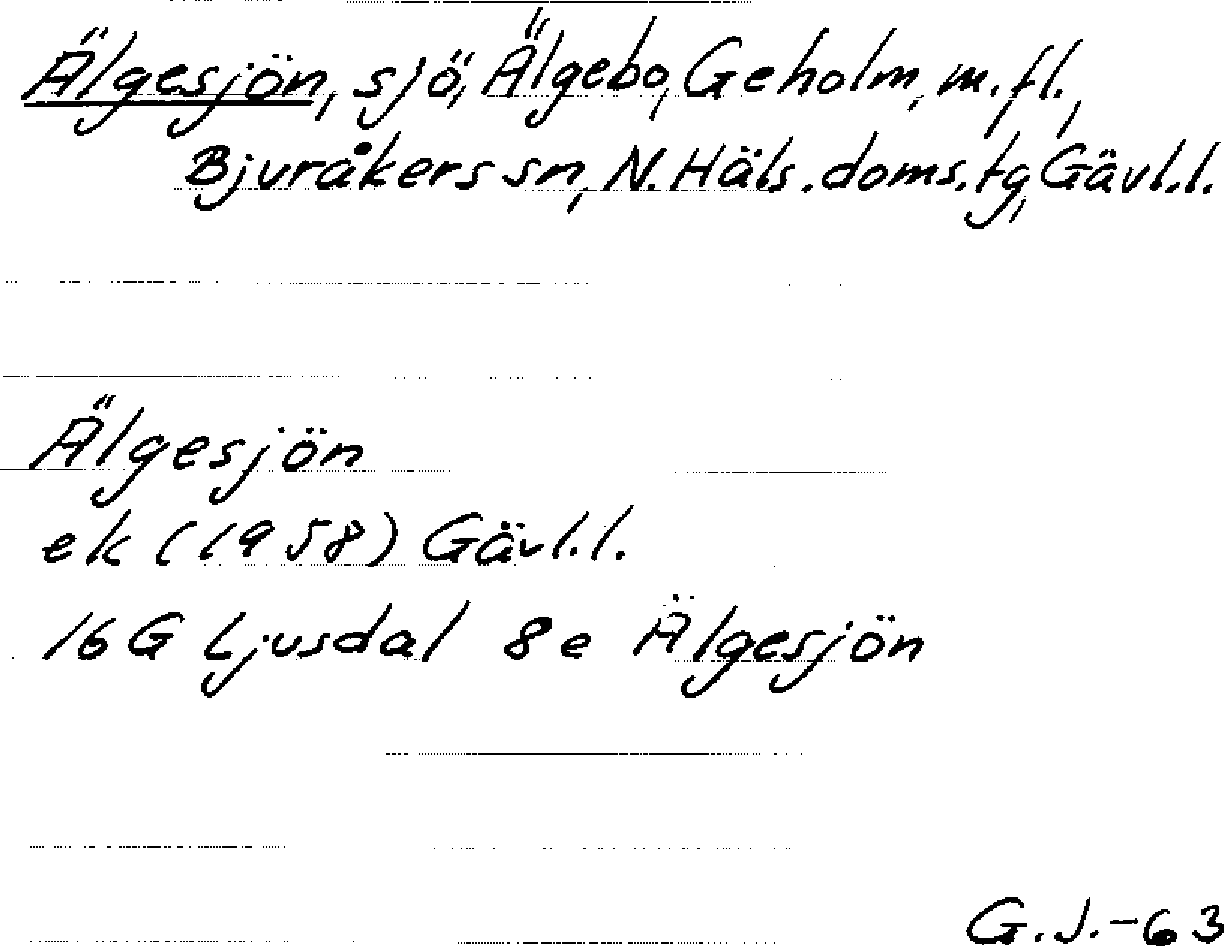 Älgesjön, sjö, Älgebo, Geholm, m.fl.,
Bjuråkers sn, N. Häls. doms. tg, Gävl.l.
Älgesjön
ek (1958) Gävl.l.
16 G Ljusdal 8e Älgesjön
G.J.-63